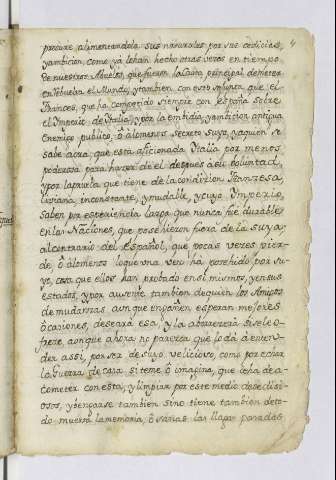 procure, alimentandola sus naturales por sus codicias,
y ambicion, como ya lo han hecho otras veces en tiempo
de nuestros Abuelos, que fueron la Causa principal de meter
en rebuelta el Mundo, y tambien con esto el que el
frances, que ha competido siempre con españa sobre
el Imperio de Italia, y por la embidia, y ambicion antigua
Enemigo publico, ô alomenos secreto suyo, y a quien se
sabe acra, que esta aficionada Italia por menos
poderosa para hacer de el despues â su boluntad,
y por la prueba que tiene de la condicion francesa,
liviana, inconstante, y mudable, y cuyo Imperio
saben por experiencia larga que nunca fue durable
en las Naciones, que poseyeron fuera de la suya,
al contrario del Español, que pocas veces pier-
de, ô alomenos lo que una vez ha posehido por su-
yo, cosa que ellos han probado en si mismos, y en sus
estados, y por ausente tambien de quien los Amigos
de mudanzas, aunque empañen esperan mejores
ôcaciones, deseará esa, y la aborrecerá si se le o-
frece, aunque ahora no paresca que lo dâ â enten-
der assi, por ser de suyo velicioso, como por echar
la Guerra de casa si teme ô imagina, que le ha de a-
cometer con esta, y limpiar por este medio de sedici-
osos, y vengarse tambien si no tiene tambien de to-
do muerta la memoria, ô sanas las llagas pasadas